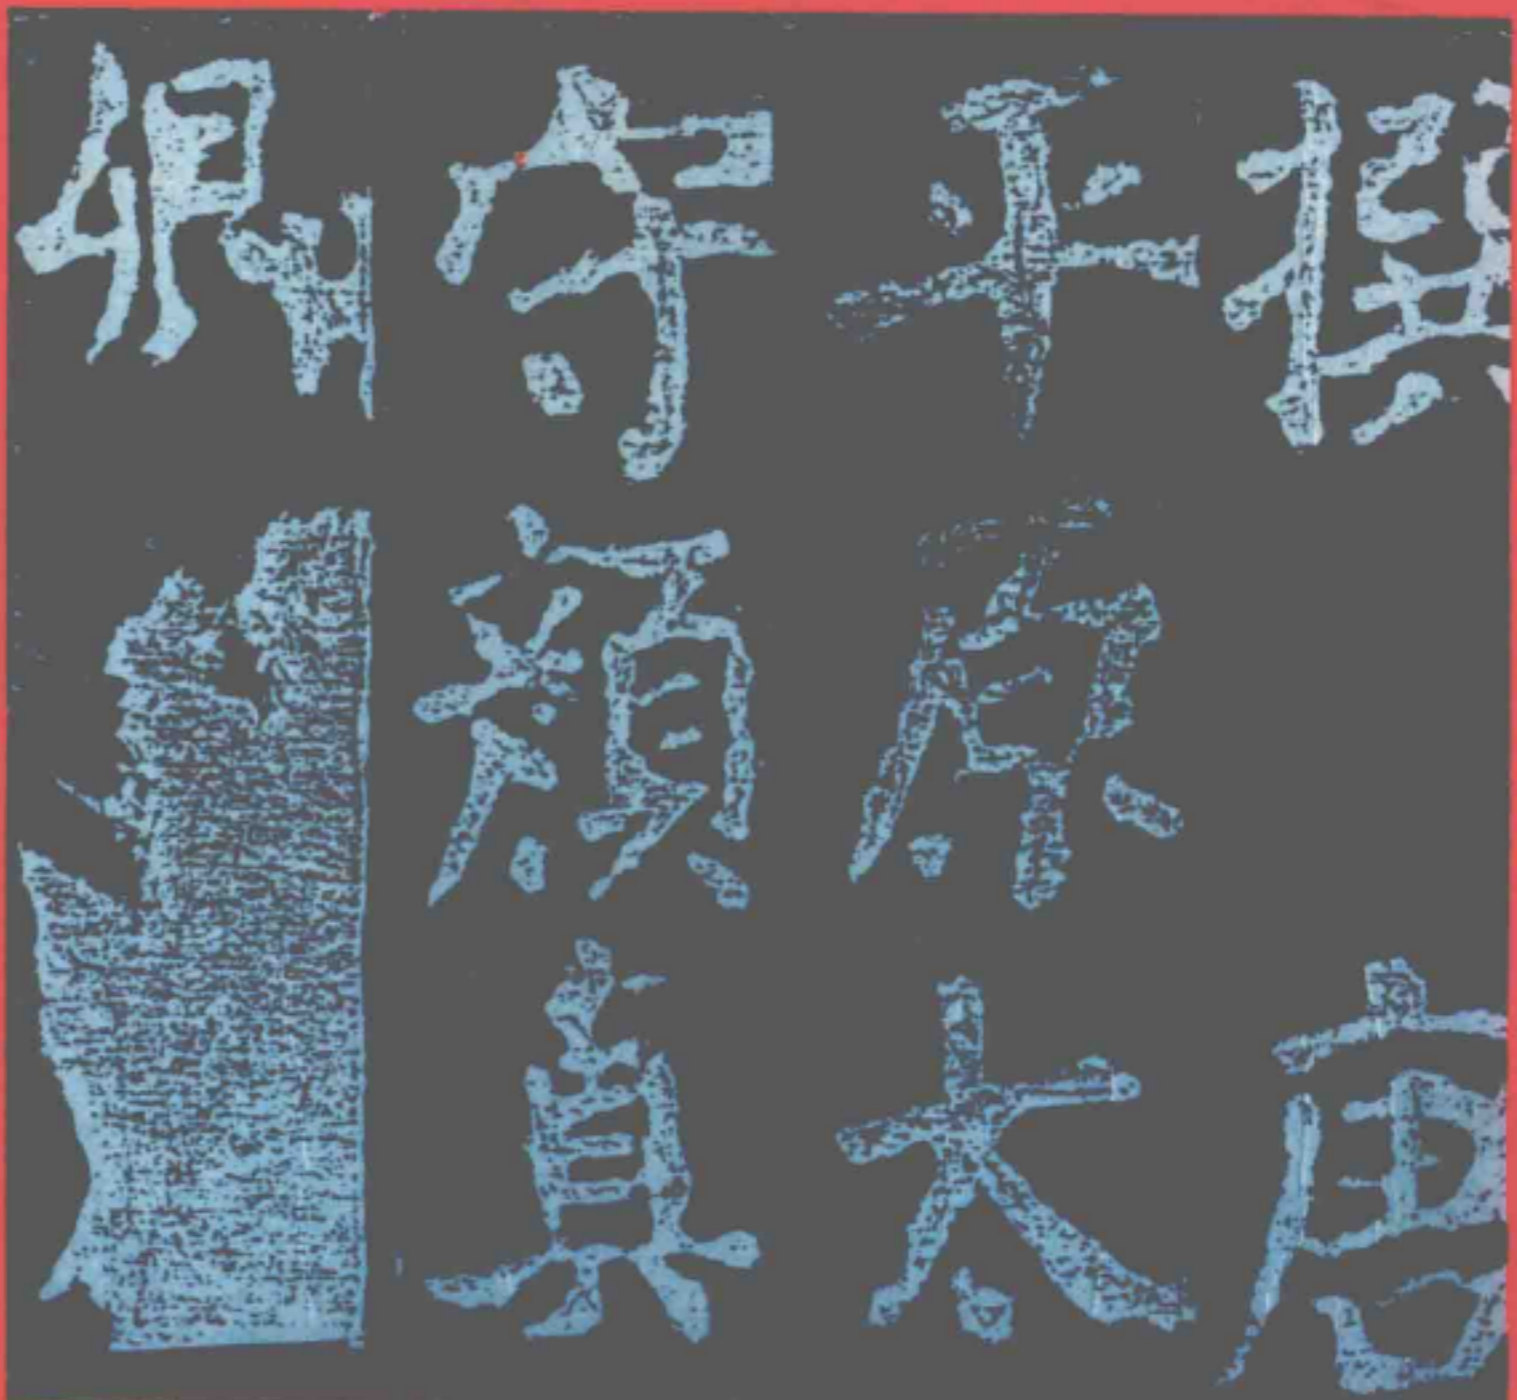 撰唐
平原太
守顏真
卿